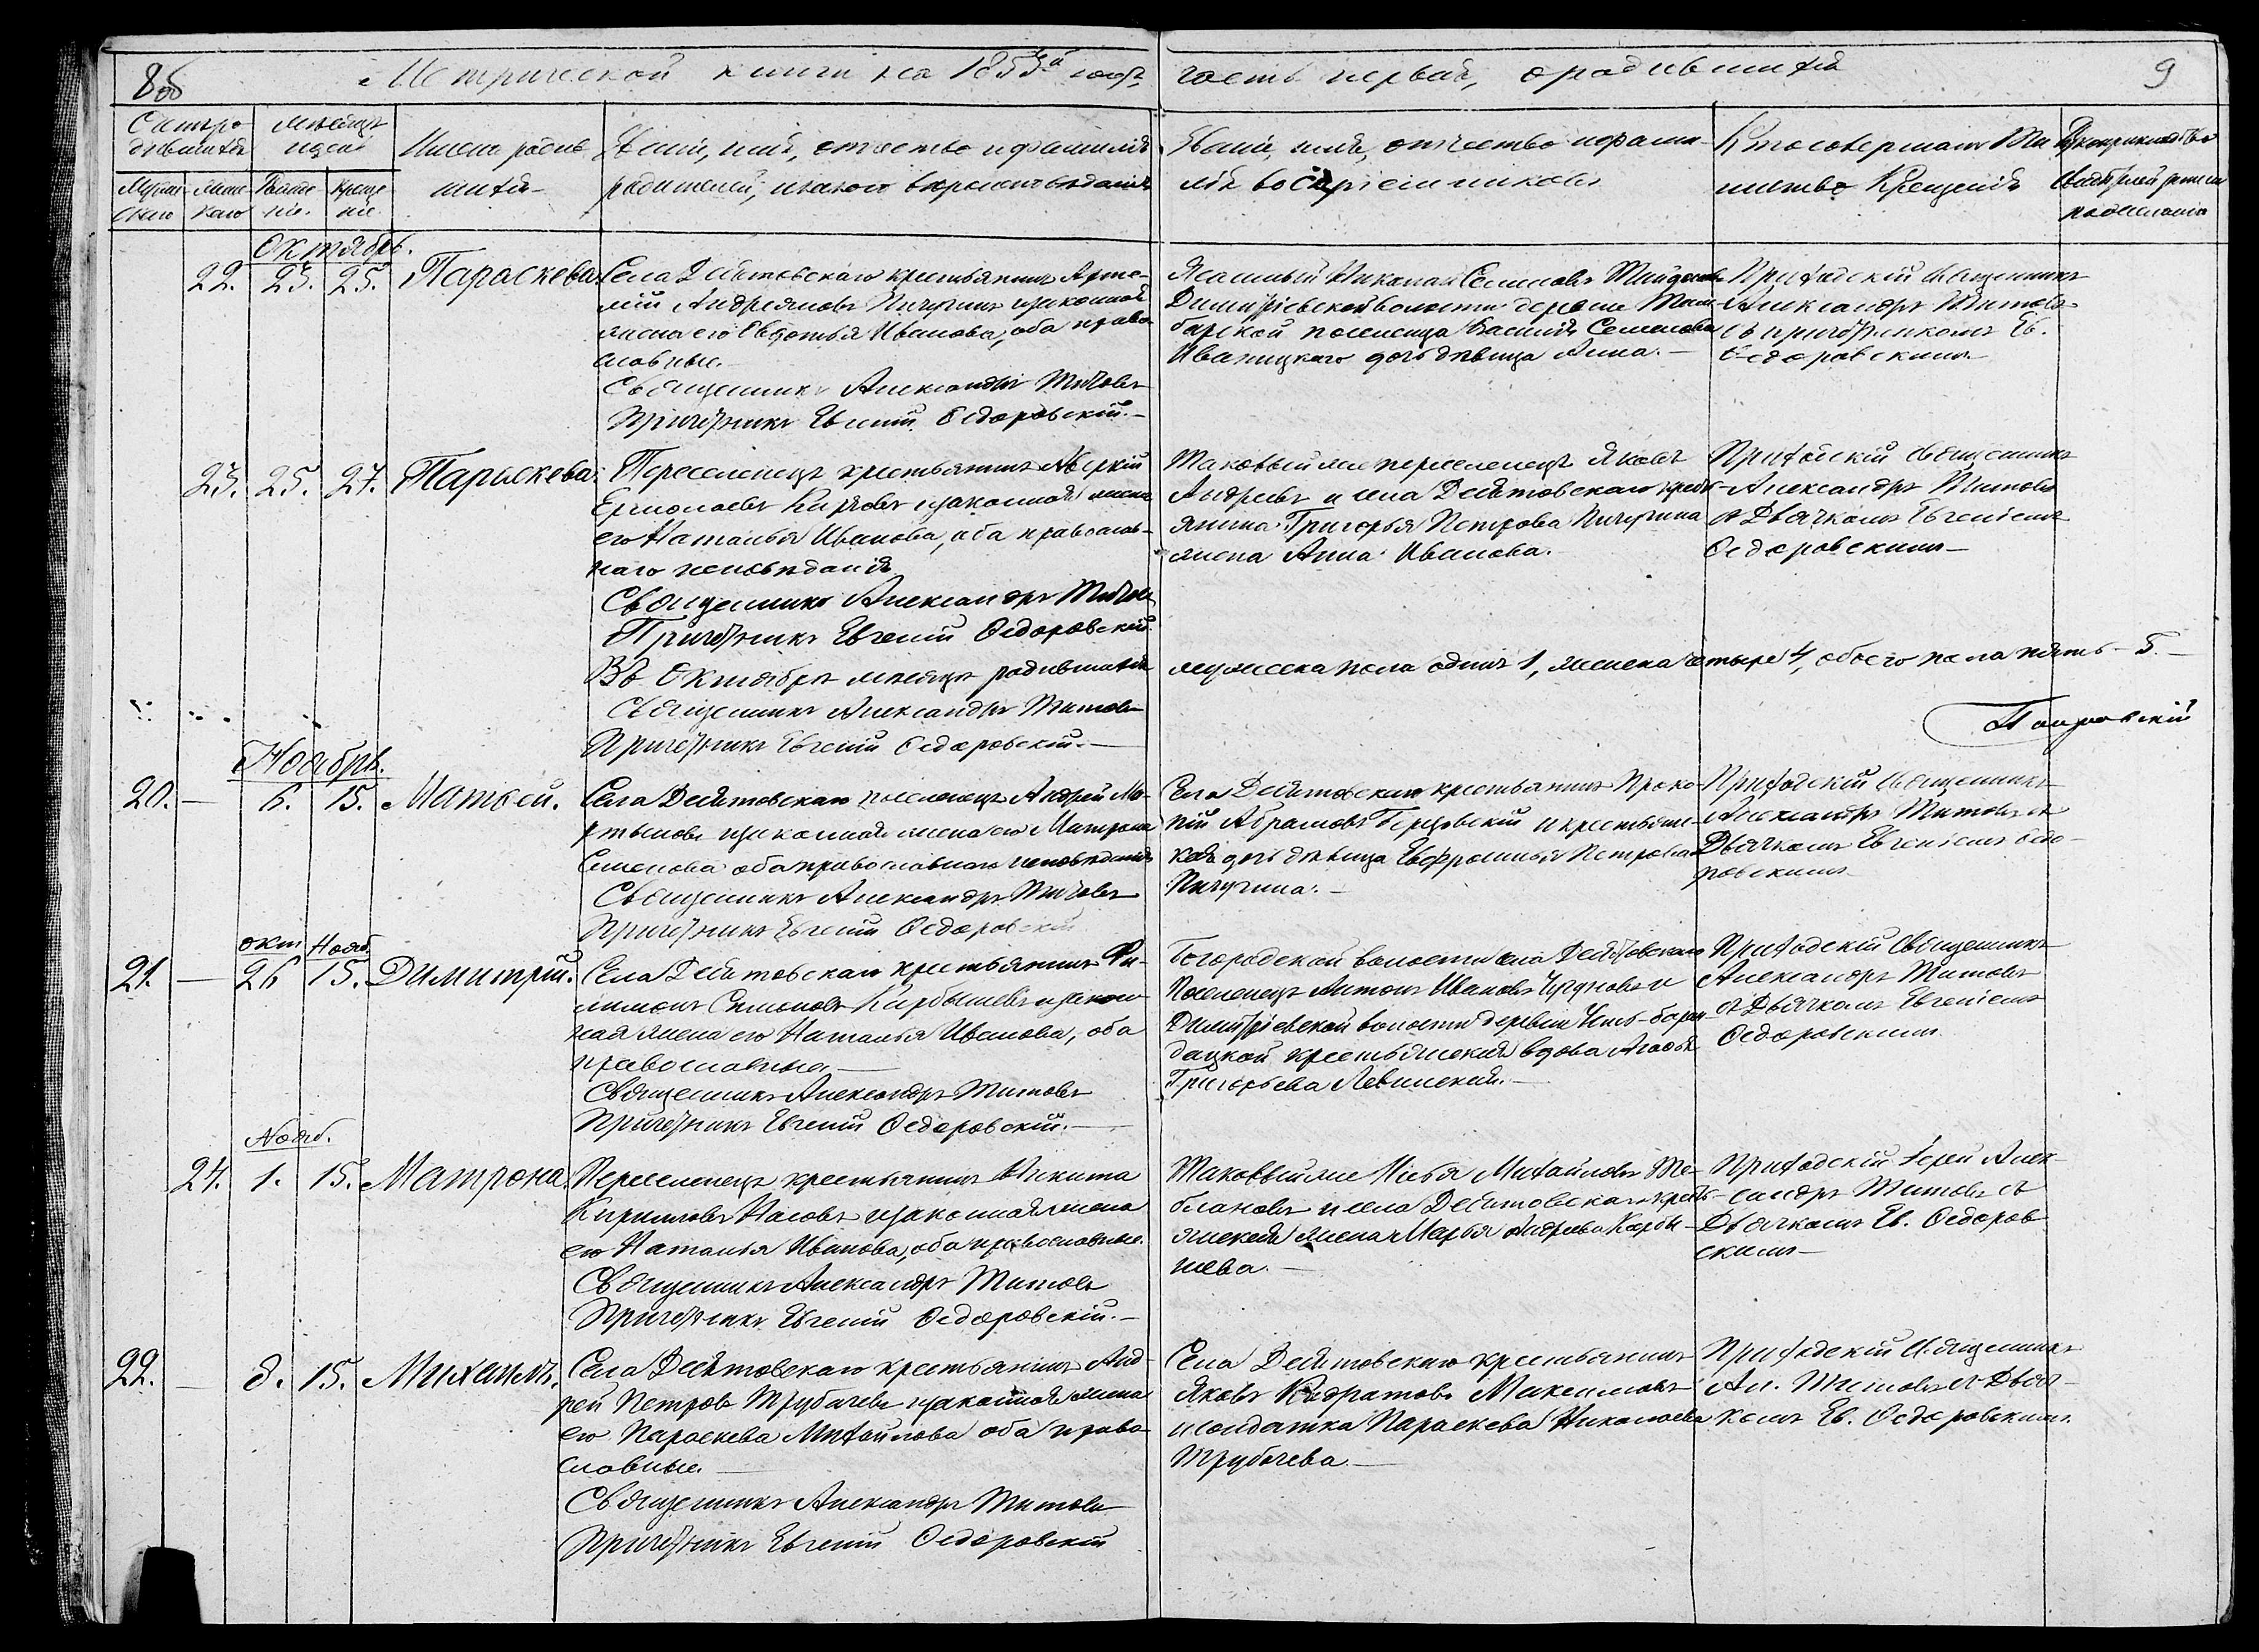 8об
Метрической книги на 1855й годъ
часть первая, о родившихся
9
Счетъ родившихся
Мѣсяцъ и день
Имена родившихся
Званіе, имя, отчество и фамилія
родителей, и какого вѣроисповѣданія
Званіе, имя, отчество и фамилія
воспріемниковъ
Кто совершалъ таинство крещенія
Рукоприкладство свидѣтелей записи по желанію
Мужескаго
Женскаго
Рожденіе.
Крещеніе.
Октябрь.
22. 23. 25. Параскева.
Села Десятовскаго крестьянинъ Артемій
Андреяновъ Пичугинъ и законная
жена его Евдотья Иванова, оба православные.
Священникъ Александръ Титовъ
Причетникъ Евгеній Ѳедоровскій.
Димитріевской волости деревни
поселенца Василія Семенова
Иваницкаго дочь дѣвица Анна.
Приходскій священникъ
Александръ Титовъ
съ причетникомъ Ев.
Ѳедоровскимъ
23. 25. 27. Параскева.
Переселенецъ крестьянинъ Аверкій
Ермолаевъ и законная жена
его Наталья Иванова, оба православнаго
исповѣданія
Священникъ Александръ Титовъ
Причетникъ Евгеній Ѳедоровскій.
Таковый же переселенецъ Яковъ
Андреевъ и села Десятовскаго крестьянина
Григорья Петрова Пичугина
жена Анна Иванова.
Приходскій священникъ
Александръ Титовъ
съ Дьячкомъ Евгеніемъ
Ѳедоровскимъ
Въ Октябрѣ мѣсяцѣ родившихся
мужеска пола одинъ 1, женска четыре 4, обоего пола пять - 5.
Священникъ Александръ Титовъ
Причетникъ Евгеній Ѳедоровскій.
Ноябрь.
20. — 6. 15. Матвей.
Села Десятовскаго поселенецъ Андрей Мартыновъ
и законная жена его Матрона
Семенова оба православнаго исповѣданія
Священникъ Александръ Титовъ
Причетникъ Евгеній Ѳедоровскій
Села Десятовскаго крестьянинъ Прокопій
Абрамовъ и крестьянская
дочь дѣвица Евфросинья Петрова
Пичугина.
Приходскій Священникъ
Александръ Титовъ съ
Дьячкомъ Евгеніемъ Ѳедоровскимъ
окт Нояб.
21. — 26 15. Димитрій.
Села Десятовскаго крестьянинъ Филимонъ
Симоновъ Карбышевъ и законная
жена его Наталья Иванова, оба
православные.
Священникъ Александръ Титовъ
Причетникъ Евгеній Ѳедоровскій.
Богородской волости села Десятовскаго
Поселенецъ Антонъ Ивановъ и
Димитріевской волости деревни
крестьянская вдова Агафья
Григорьева Левинская.
Приходскій Священникъ
Александръ Титовъ
съ Дьячкомъ Евгеніемъ
Ѳедоровскимъ.
Нояб.
24. 1. 15. Матрона.
Переселенецъ крестьянинъ Никита
Кириловъ Насовъ и законная жена
его Наталья Иванова, оба православные.
Священникъ Александръ Титовъ
Причетникъ Евгеній Ѳедоровскій.
Таковый же Илья Михайловъ
и села Десятовскаго крестьянская
жена Марья Андреева Карбышева.
Приходскій Іерей Александръ
Титовъ съ
Дьячкомъ Ев. Ѳедоровскимъ
22. — 8. 15. Михаилъ.
Села Десятовскаго крестьянинъ Андрей
Петровъ Трубачевъ и законная жена
его Параскева Михайлова оба православные.
Священникъ Александръ Титовъ
Причетникъ Евгеній Ѳедоровскій
Села Десятовскаго крестьянинъ
Яковъ Максимовъ
и солдатка Параскева Николаева
Трубачева.
Приходскій Священникъ
Ал. Титовъ съ Дьячкомъ
Ев. Ѳедоровскимъ.